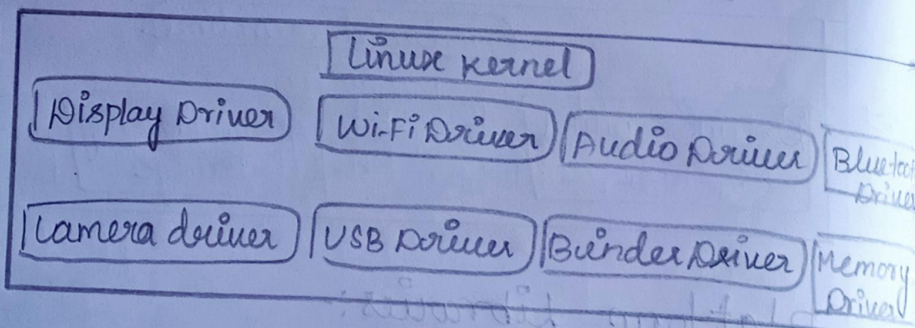 Linux Kernel
Display Driver
Wi-Fi Driver
Audio Driver
Camera driver
USB Driver
Binder Driver
Memory
Driver